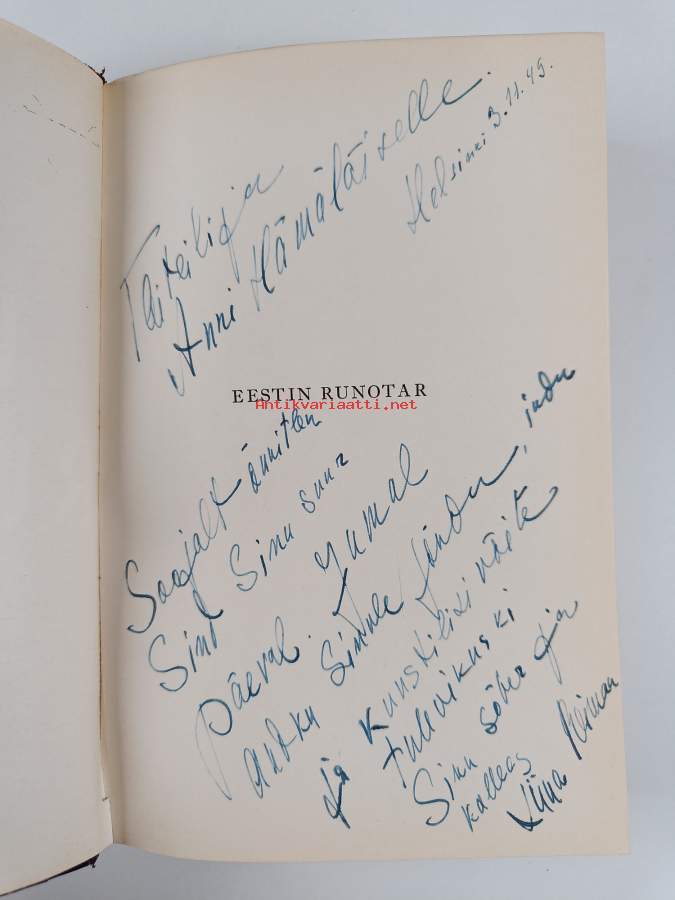 Taiteilija
Anni Hämäläiselle.
Helsinki 3.11.45.
EESTIN RUNOTAR
Antikvariaatti.net
Soojalt õnnitlen
Sind Sinu suur
päeval. Jumal
andku Sinule õndu, jõdu
ja kunstilisi võite
tulevikuski
Sinu sõber ja
kolleeg
Liina Reiman